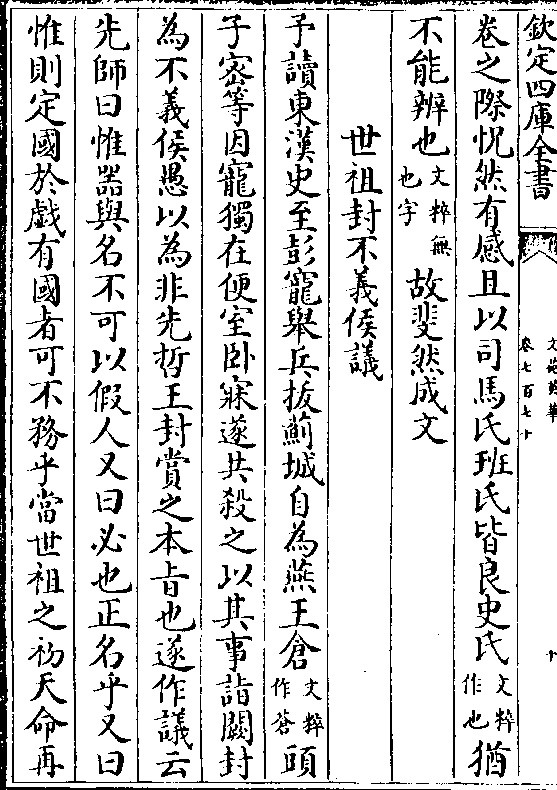 欽定四庫全書
文苑英華
卷七百七十
十
卷之際怳然有感且以司馬氏班氏皆良史氏文粹作也猶
不能辨也文粹無也字故斐然成文
世祖封不義侯議
予讀東漢史至彭寵舉兵拔薊城自為燕王倉文粹作蒼頭
子密等因寵獨在便室卧寐遂共殺之以其事詣闕封
為不義侯愚以為非先哲王封賞之本旨也遂作議云
先師曰惟器與名不可以假人又曰必也正名乎又曰
惟則定國於戲有國者可不務乎當世祖之初天命再